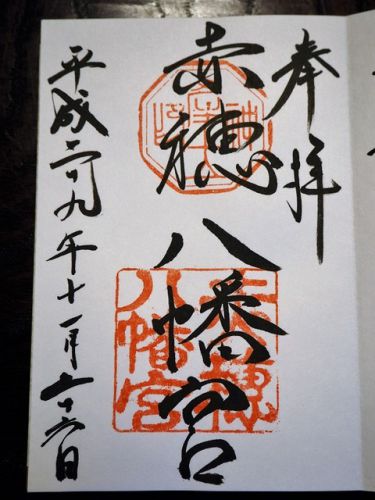 奉拝
赤穂八幡宮
平成二十九年十一月二十六日
赤穂
八幡宮